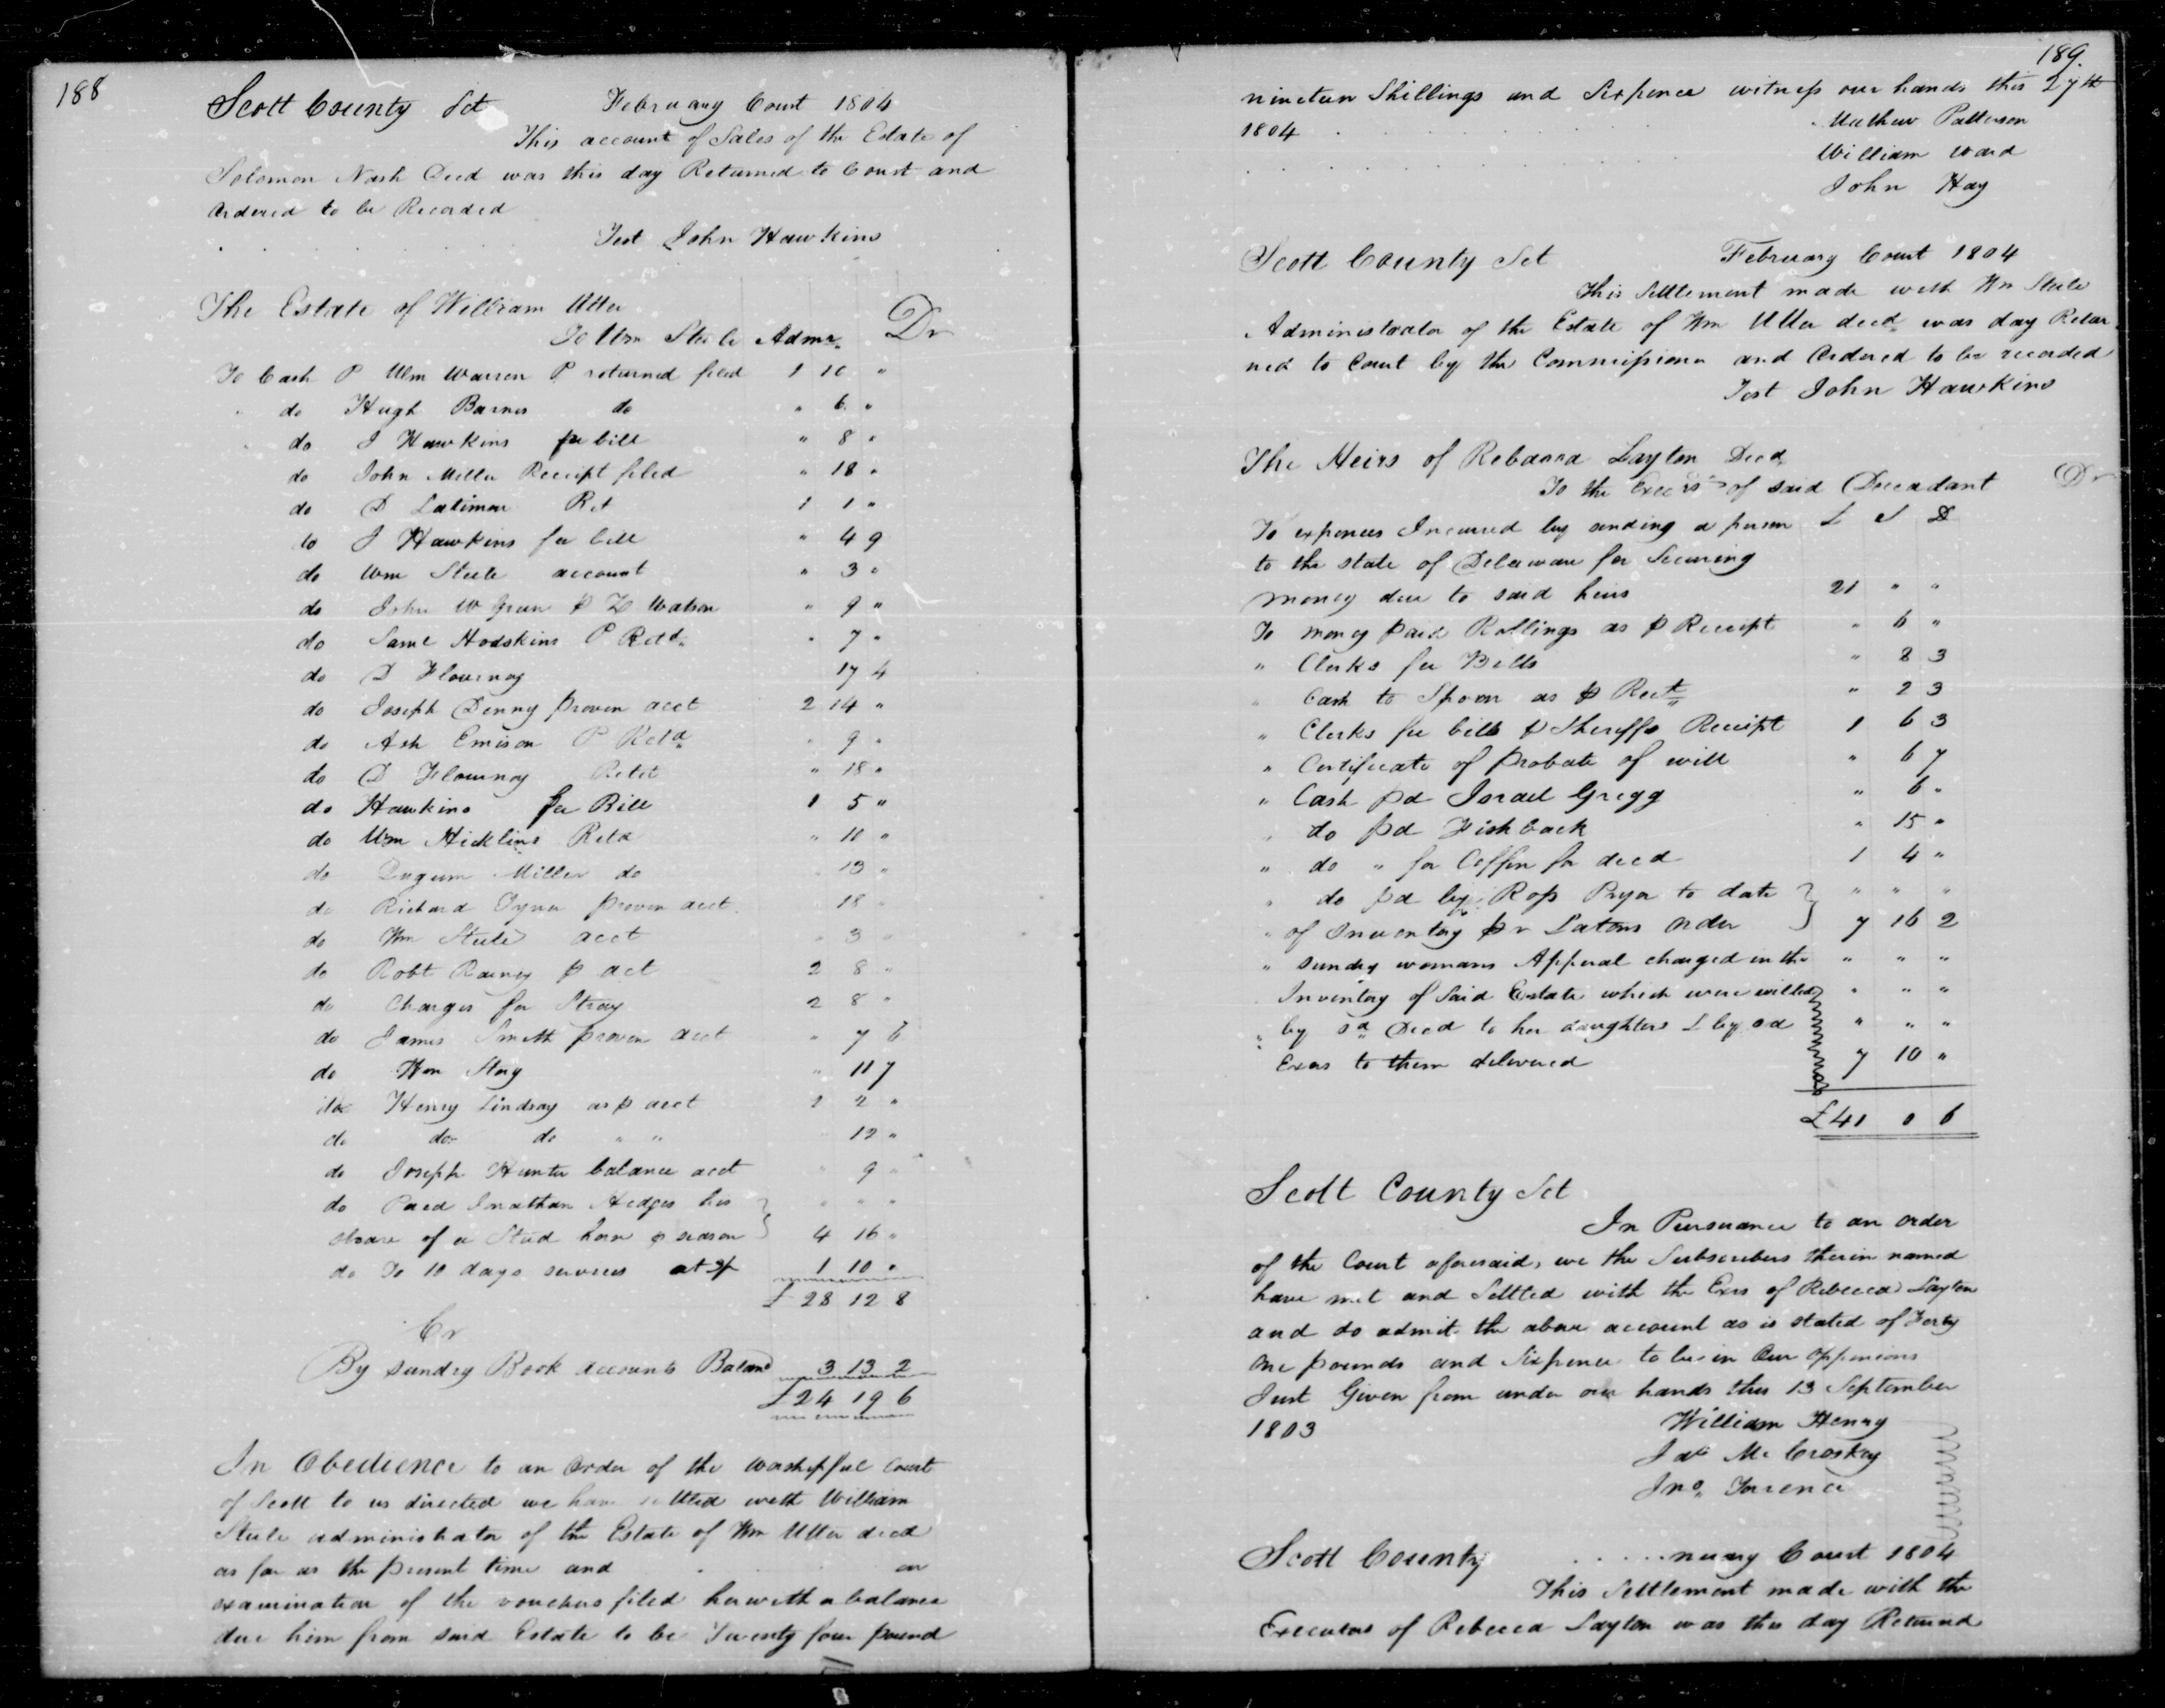 188
Scott County Sct February Court 1804
This account of Sales of the Estate of
Solomon Nash Decd was this day Returned to Court and
Ordered to be Recorded
Test John Hawkins
The Estate of William Utter
To Wm Steele Admr. Dr
To Cash P Wm Warren P returned filed 1 10 "
" do Hugh Barnes do " 6 "
" do J Hawkins fee bill " 8 "
do John Miller Receipt filed " 18 "
do D Latimer Ret 1 1 "
to J Hawkins fee bill " 4 9
do Wm Steele account " 3 "
do John W Green P Watson " 9 "
do Saml Hodskins P Retd " 7 "
do D Flournoy 17 4
do Joseph Denny proven acct 2 14 "
do Ash Emison P Retd " 9 "
do D Flournoy Retd " 18 "
do Hawkins fee Bill 1 5 "
do Wm Hicklins Retd " 11 "
do Miller do " 13 "
do Richard proven acct 18 "
do Wm Steele acct " 3 "
do Robt Rainey P act 2 8 "
do Charges for Stray 2 8 "
do James Smith proven acct " 7 6
do Wm Story " 11 7
do Henry Lindsay as P acct 1 2 "
do do do " " 12 "
do Joseph Hunter balance acct " 9 "
do Paid Jonathan Hedges his " " "
share of a Stud horse P season 4 16 "
do To 10 days services at 3/ 1 10 "
£ 28 12 8
Cr
By sundry Book accounts Balance 3 13 2
£ 24 19 6
In Obedience to an Order of the worshipful Court
of Scott to us directed we have settled with William
Steele administrator of the Estate of Wm Utter decd
as far as the present time and on
examination of the vouchers filed herewith a balance
due him from said Estate to be Twenty four pound
189.
nineteen Shillings and Sixpence witness our hands this 27th
1804 Mathew Patterson
William Ward
John Hay
Scott County Sct February Court 1804
This Settlement made with Wm Steele
Administrator of the Estate of Wm Utter decd was day Retur
ned to Court by the Commissioner and Ordered to be recorded
Test John Hawkins
The Heirs of Rebacca Layton Decd
To the Execrs of said Deceadant Dr
To expences Incurred by sending a person L S D
to the state of Delaware for Securing
money due to said heirs 21 " "
To money paid Rollings as P Receipt " 6 "
" Clerks fee Bills " 8 3
" Cash to Spoon as P Rect " 2 3
" Clerks fee bills P Sheriffs Receipt 1 6 3
" Certificate of probate of will " 6 7
" Cash pd Israel Gregg " 6 "
" do pd Fishback " 15 "
" do " for Coffin for decd 1 4 "
" do pd by Ross Pryor to date " " "
" of Inventory pr Latons order 7 16 2
" sundry womans Apperal charged in the " " "
Inventory of Said Estate which were willed " " "
" by sd Decd to her daughters & by sd " " "
Exors to them delivered 7 10 "
£ 41 0 6
Scott County Sct
In Pursuance to an order
of the Court aforesaid, we the Subscribers therin named
have met and Settled with the Exrs of Rebecca Layton
and do admit the above account as is stated of Forty
one pounds and Sixpence to be in Our oppenions
Just Given from under our hands this 13 September
1803 William Henry
Mc Croskey
Jno.
Scott County nuary Court 1804
This Settlement made with the
Executors of Rebecca Layton was this day Returned